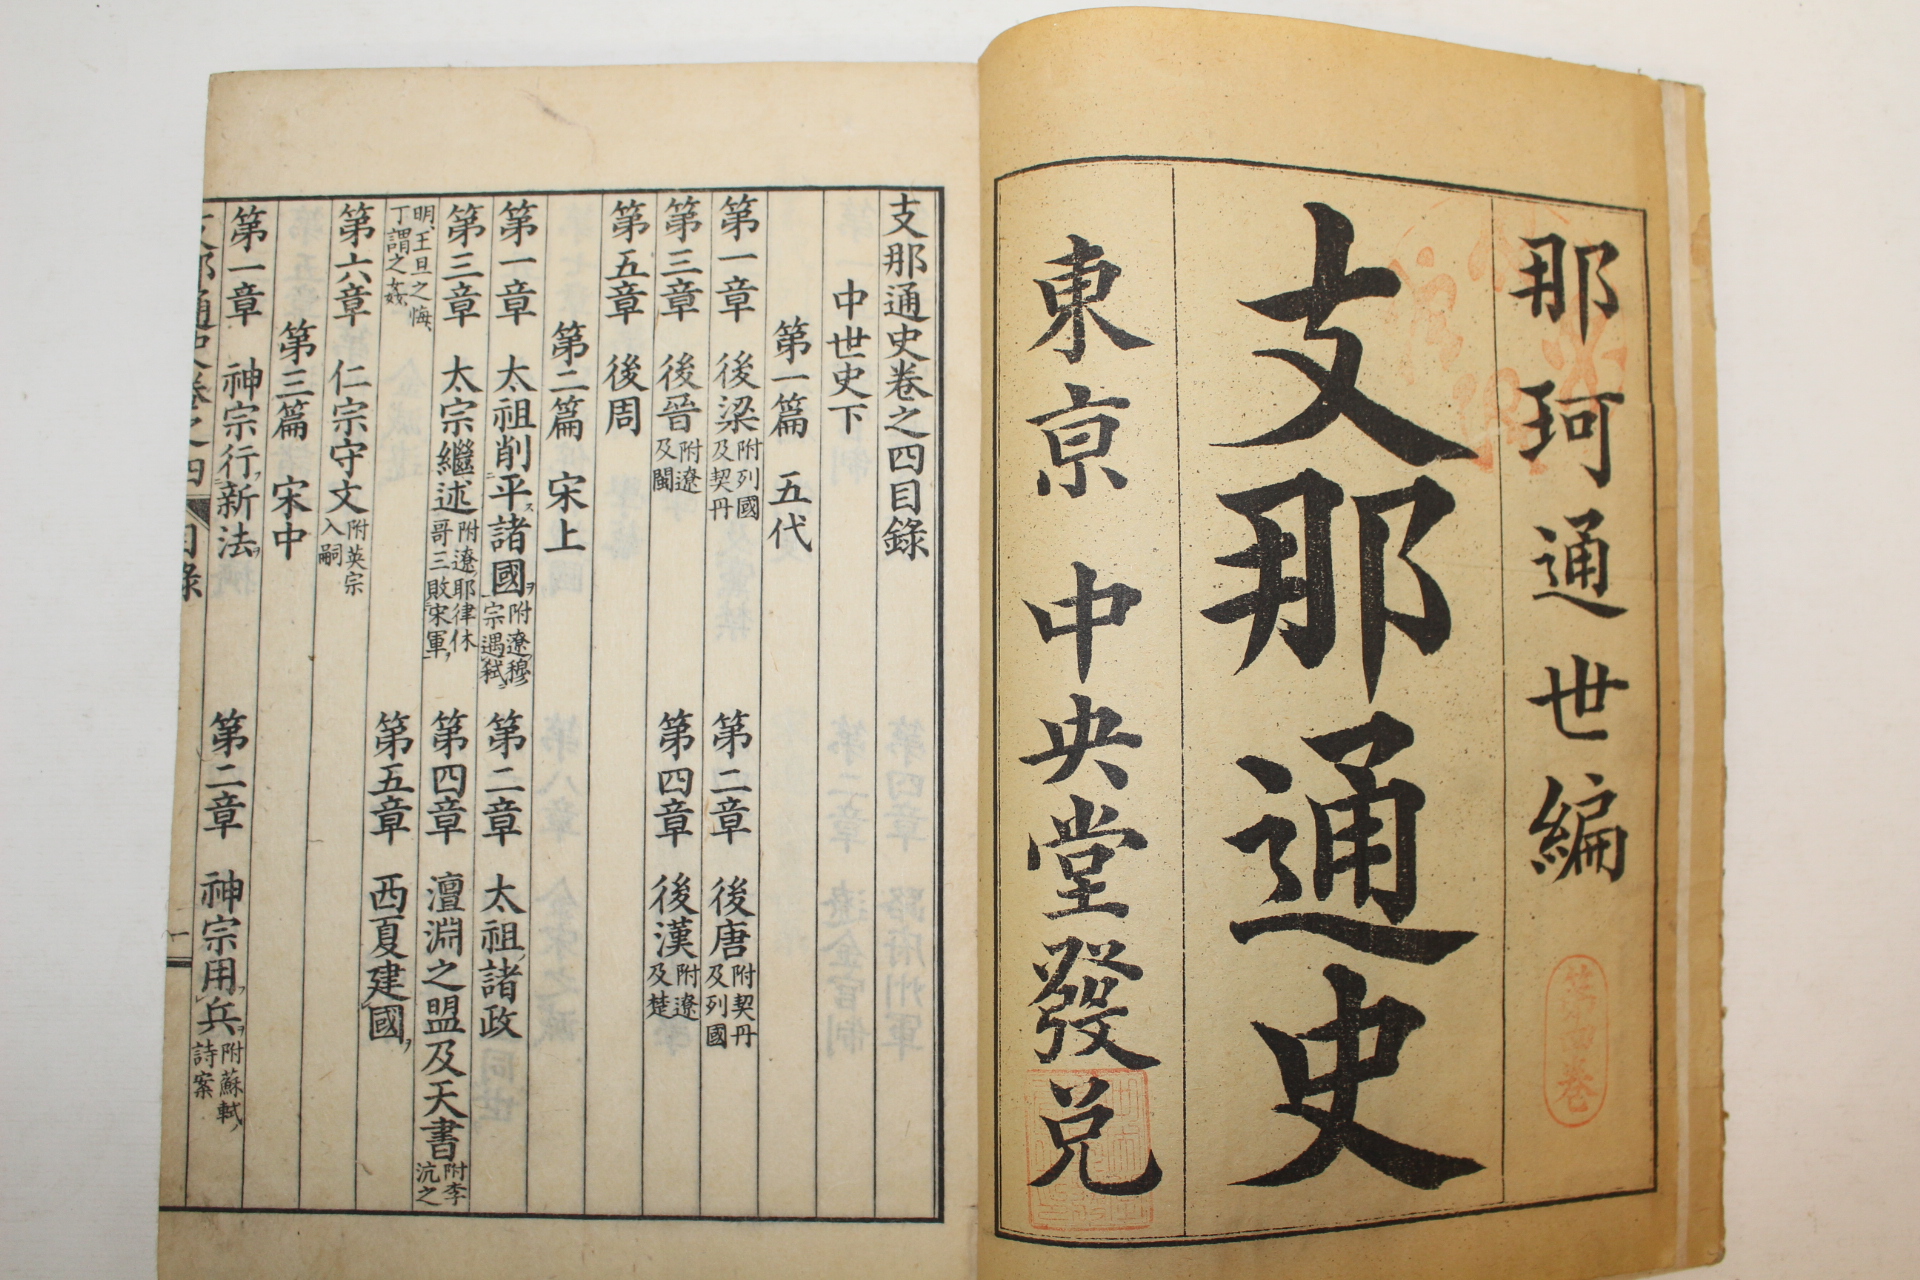 那珂通世編
支那通史
東京 中央堂發兌
第四卷
支那通史卷之四目錄
中世史下
第一篇 五代
第一章 後梁 附列國及契丹 第二章 後唐 附契丹及列國
第三章 後晉 附遼及閩 第四章 後漢 附遼及楚
第五章 後周
第二篇 宋上
第一章 太祖削平諸國ヲ 附遼穆宗遇弑 第二章 太祖諸政
第三章 太宗繼述 附遼耶律休哥三敗宋軍 第四章 澶淵之盟及天書 附李沆之
明、王旦之悔、丁謂之姦、 第五章 西夏建國
第六章 仁宗守文 附英宗入嗣
第三篇 宋中
第一章 神宗行新法 第二章 神宗用兵 附蘇軾詩案
支那通史卷之四 目錄 一